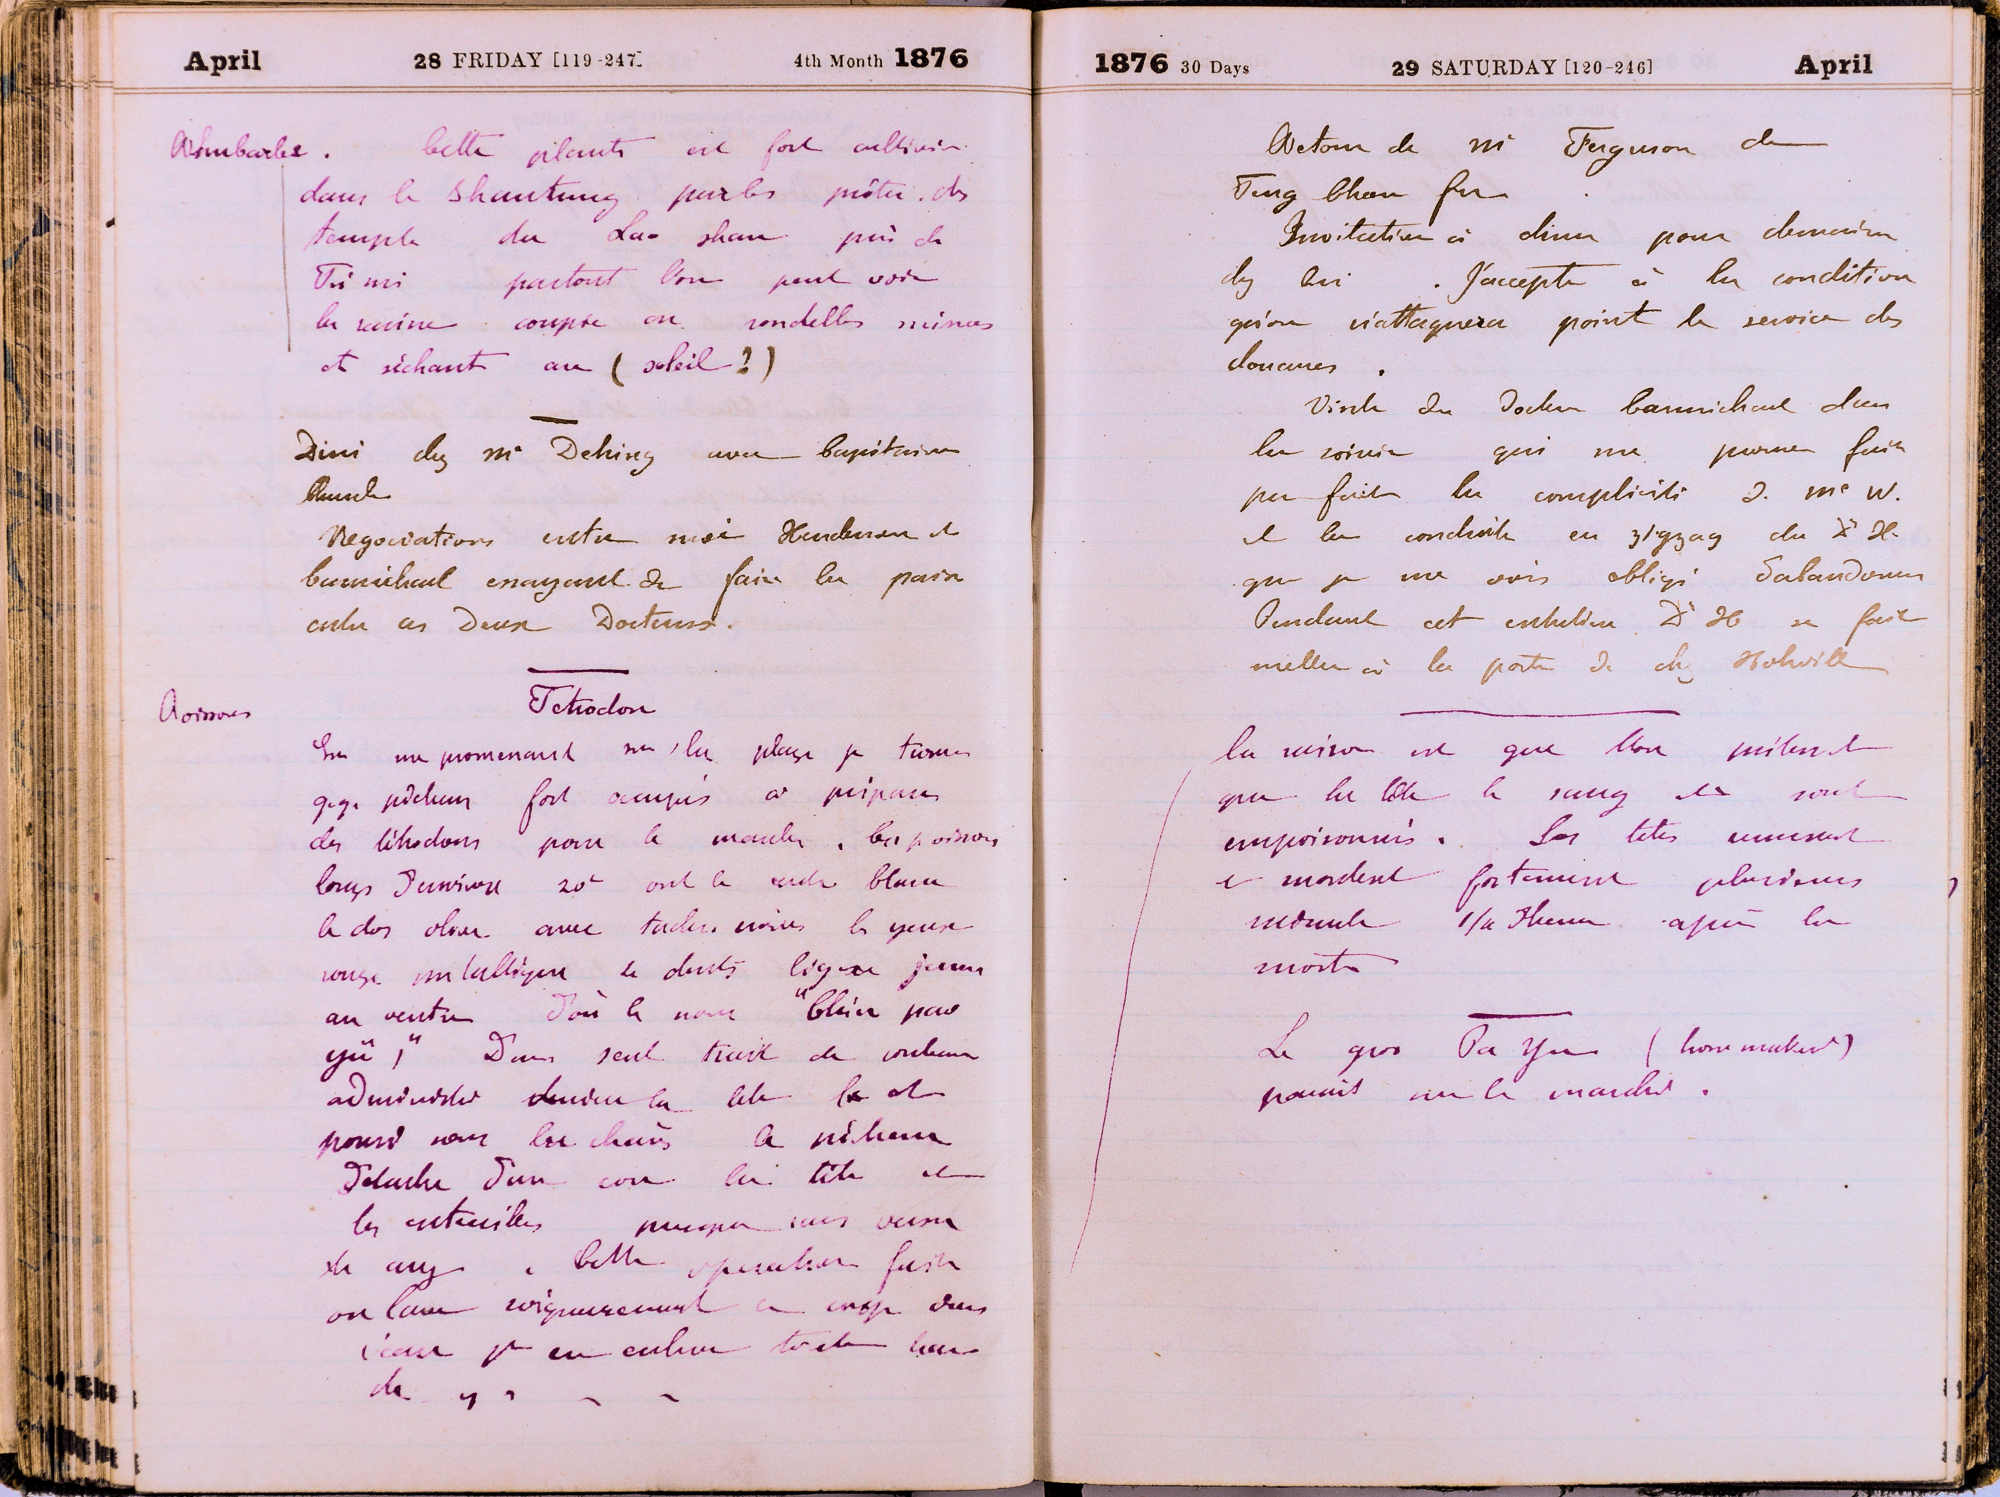 April 28 FRIDAY [119-247] 4th Month 1876
Cette plante est fort cultivée
dans le Shantung par les prêtres des
temple du Lao shan près de
Tsi mi partout l'on peut voir
la racine coupée en rondelles minces
et séchant au (soleil?)
Diné chez Mr Dehing avec Capitaine
Negociations entre moi Henderson et
Carmichael essayant de faire la paix
entre ces Deux Docteurs.
Poissons
Tetrodon
En me promenant sur la plage je trouve
qqs pêcheurs fort occupés à préparer
des tétrodons pour le marché. Les poissons
longs d'environ 20c ont le ventre blanc
le dos olive avec taches noires les yeux
rouge métallique et dents jaune
au ventre d'où le nom "Chien pao
yü," D'un seul trait de couteau
administré derrière la tête et
sous les chairs le pêcheur
Détache d'un coup la tête et
les entrailles presque sans verser
de sang. Cette operation faite
on lave soigneusement le corps dans
l'eau pr en enlever toute trace
de
1876 30 Days 29 SATURDAY [120-246] April
Retour de Mr Ferguson de
Teng Chow fu
Invitation à diner pour demain
chez lui. J'accepte à la condition
qu'on n'attaquera point le service des
douanes.
Visite du Docteur Carmichael dans
la soirée qui me prouve fait
par fait la complicité de Mr W.
et la conduite en zigzag du Dr H.
que je me vois obligé d'abandonner
Pendant cet entretien Dr H se fait
à la porte de chez Holwill
la raison est que l'on prétend
que la tête le sang etc sont
empoisonnés. Les têtes remuent
et mordent fortement plusieurs
minute 1/4 d'heure après la
mort
Le gros Ta Yu (
parait sur le marché.